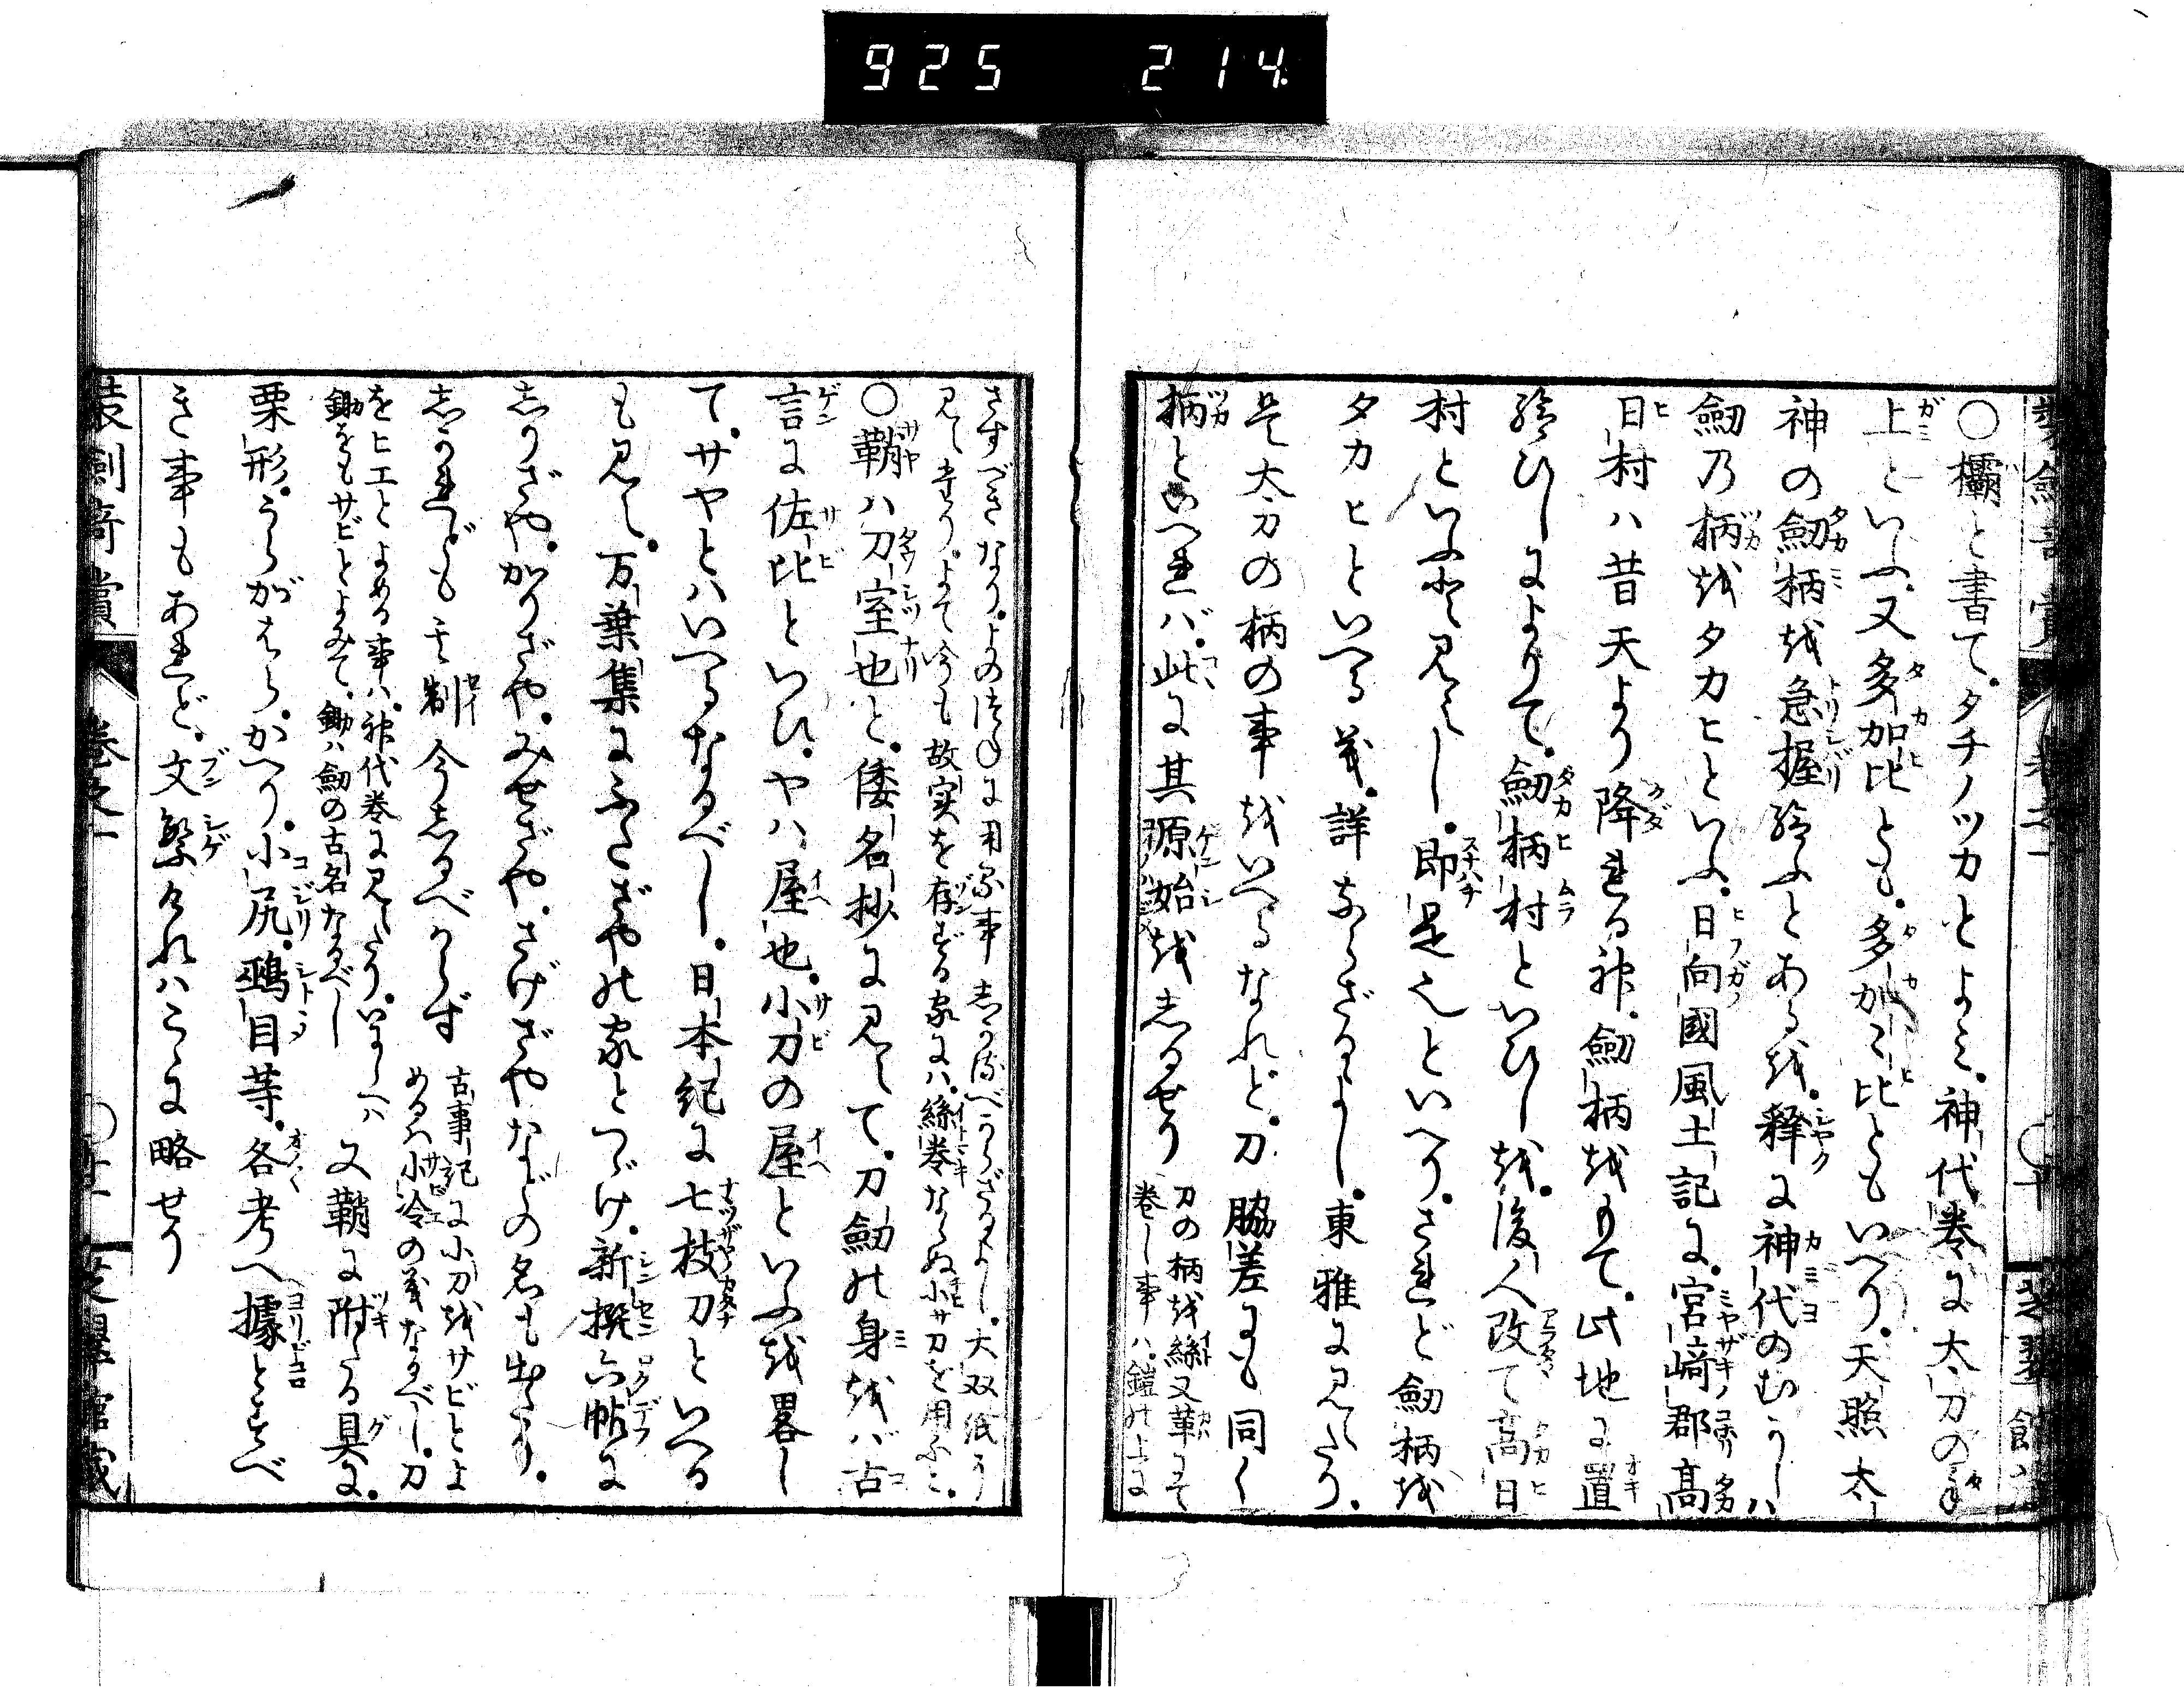 925 214
○欛と書て。タチノツカとよミ。神代巻に太刀の手
上といふ。又多加比とも。多加ミ比ともいへり。天照太
神の劔柄越急握給ふとある越。釋に神代のむかしハ
劔乃柄越タカヒといふ。日向國風土記に。宮﨑郡髙
日村ハ昔天より降れる神。劔柄越もて。此地に置
給ひしによりて。劔柄村といひし越。後人改て髙日
村といふと見えし。即是也といへり。されど劔柄越
タカヒといへる義。詳ならざるよし。東雅に見えたり。
是太刀の柄の事越いへるなれど。刀脇差にも同く
柄といへれバ。此に其源始越志るせり
刀の柄越絲又革にて
巻し事ハ。鎧の上に
さすべきなり。よのつねに用る事志かるべからざるよし。大双紙う
見えたり。よて今も故実を存ずる家にハ。絲巻ならぬ小サ刀を用ふと。
○鞘ハ刀室也と。倭名抄に見えて。刀劔の身越バ古
言に佐比といひ。ヤハ屋也。小刀の屋といふ越畧し
て。サヤとハいへるなるべし。日本紀に七枝刀といへる
も見え。万葉集にふたざやの家とつゞけ。新撰六帖に
志りざや。かりざや。みせざや。さげざやなどの名も出たり。
志かれども其制今志るべからず
古事記に小刀越サビとよ
めるハ小冷の義なるべし。刀
をヒエとよめる事ハ。神代巻に見えたり。いにしへハ
鋤をもサビとよみて。鋤ハ劔の古名なるべし
又鞘に附たる具に。
栗形。うらがはら。かへり。小尻。鵐目等。各考へ據とすべ
き事もあれど。文繁けれハこゝに略せり
装劍奇賞 巻之一